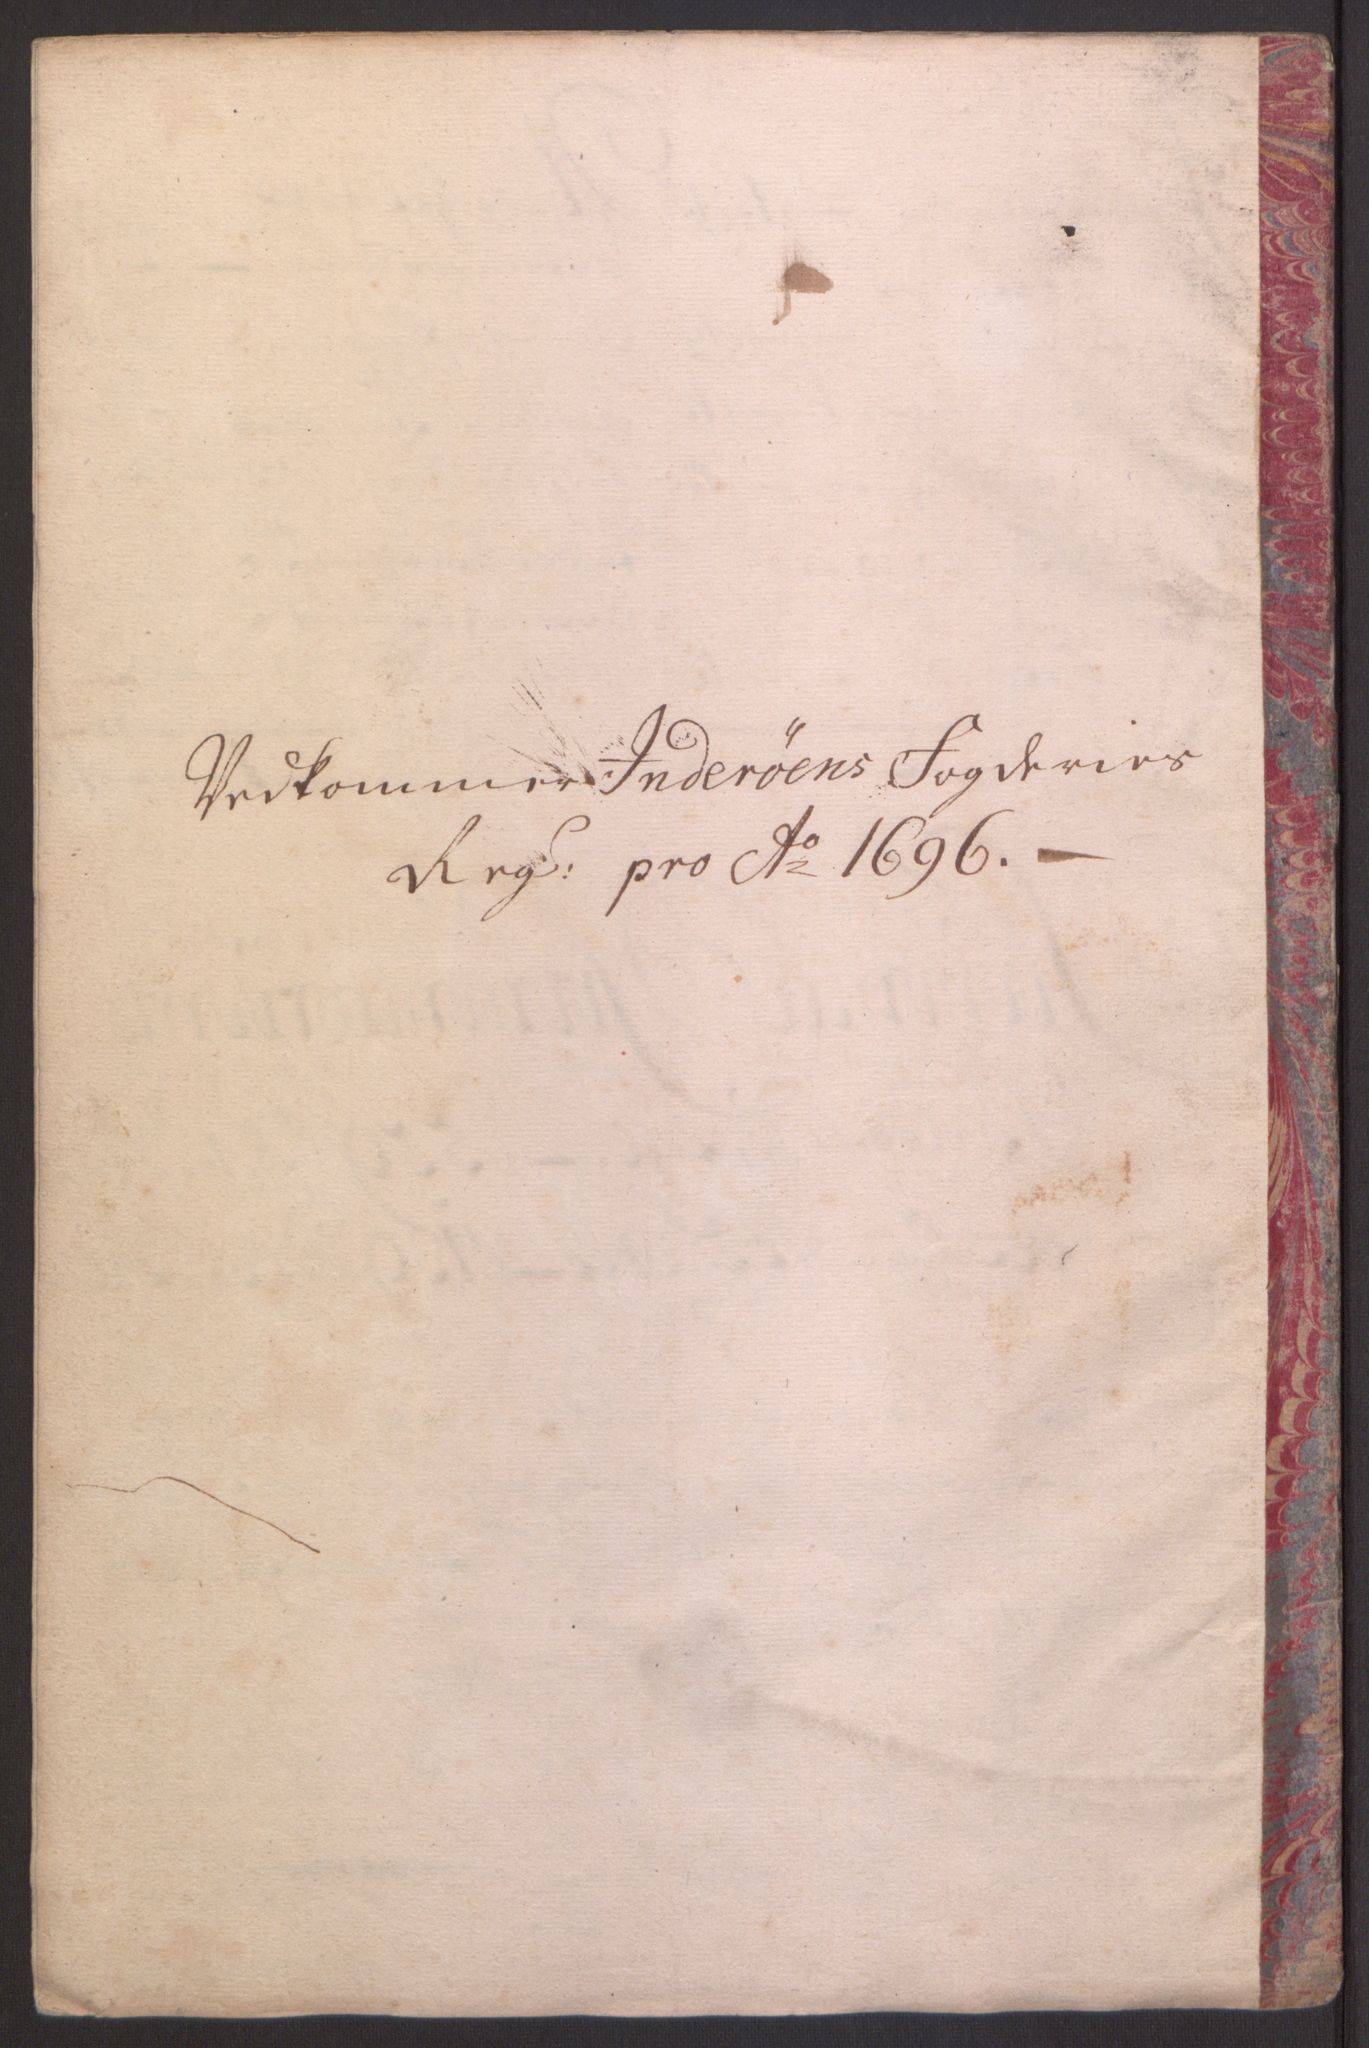 Vedkommer Inderöens Fogderies
Regs: pro Ao 1696. —